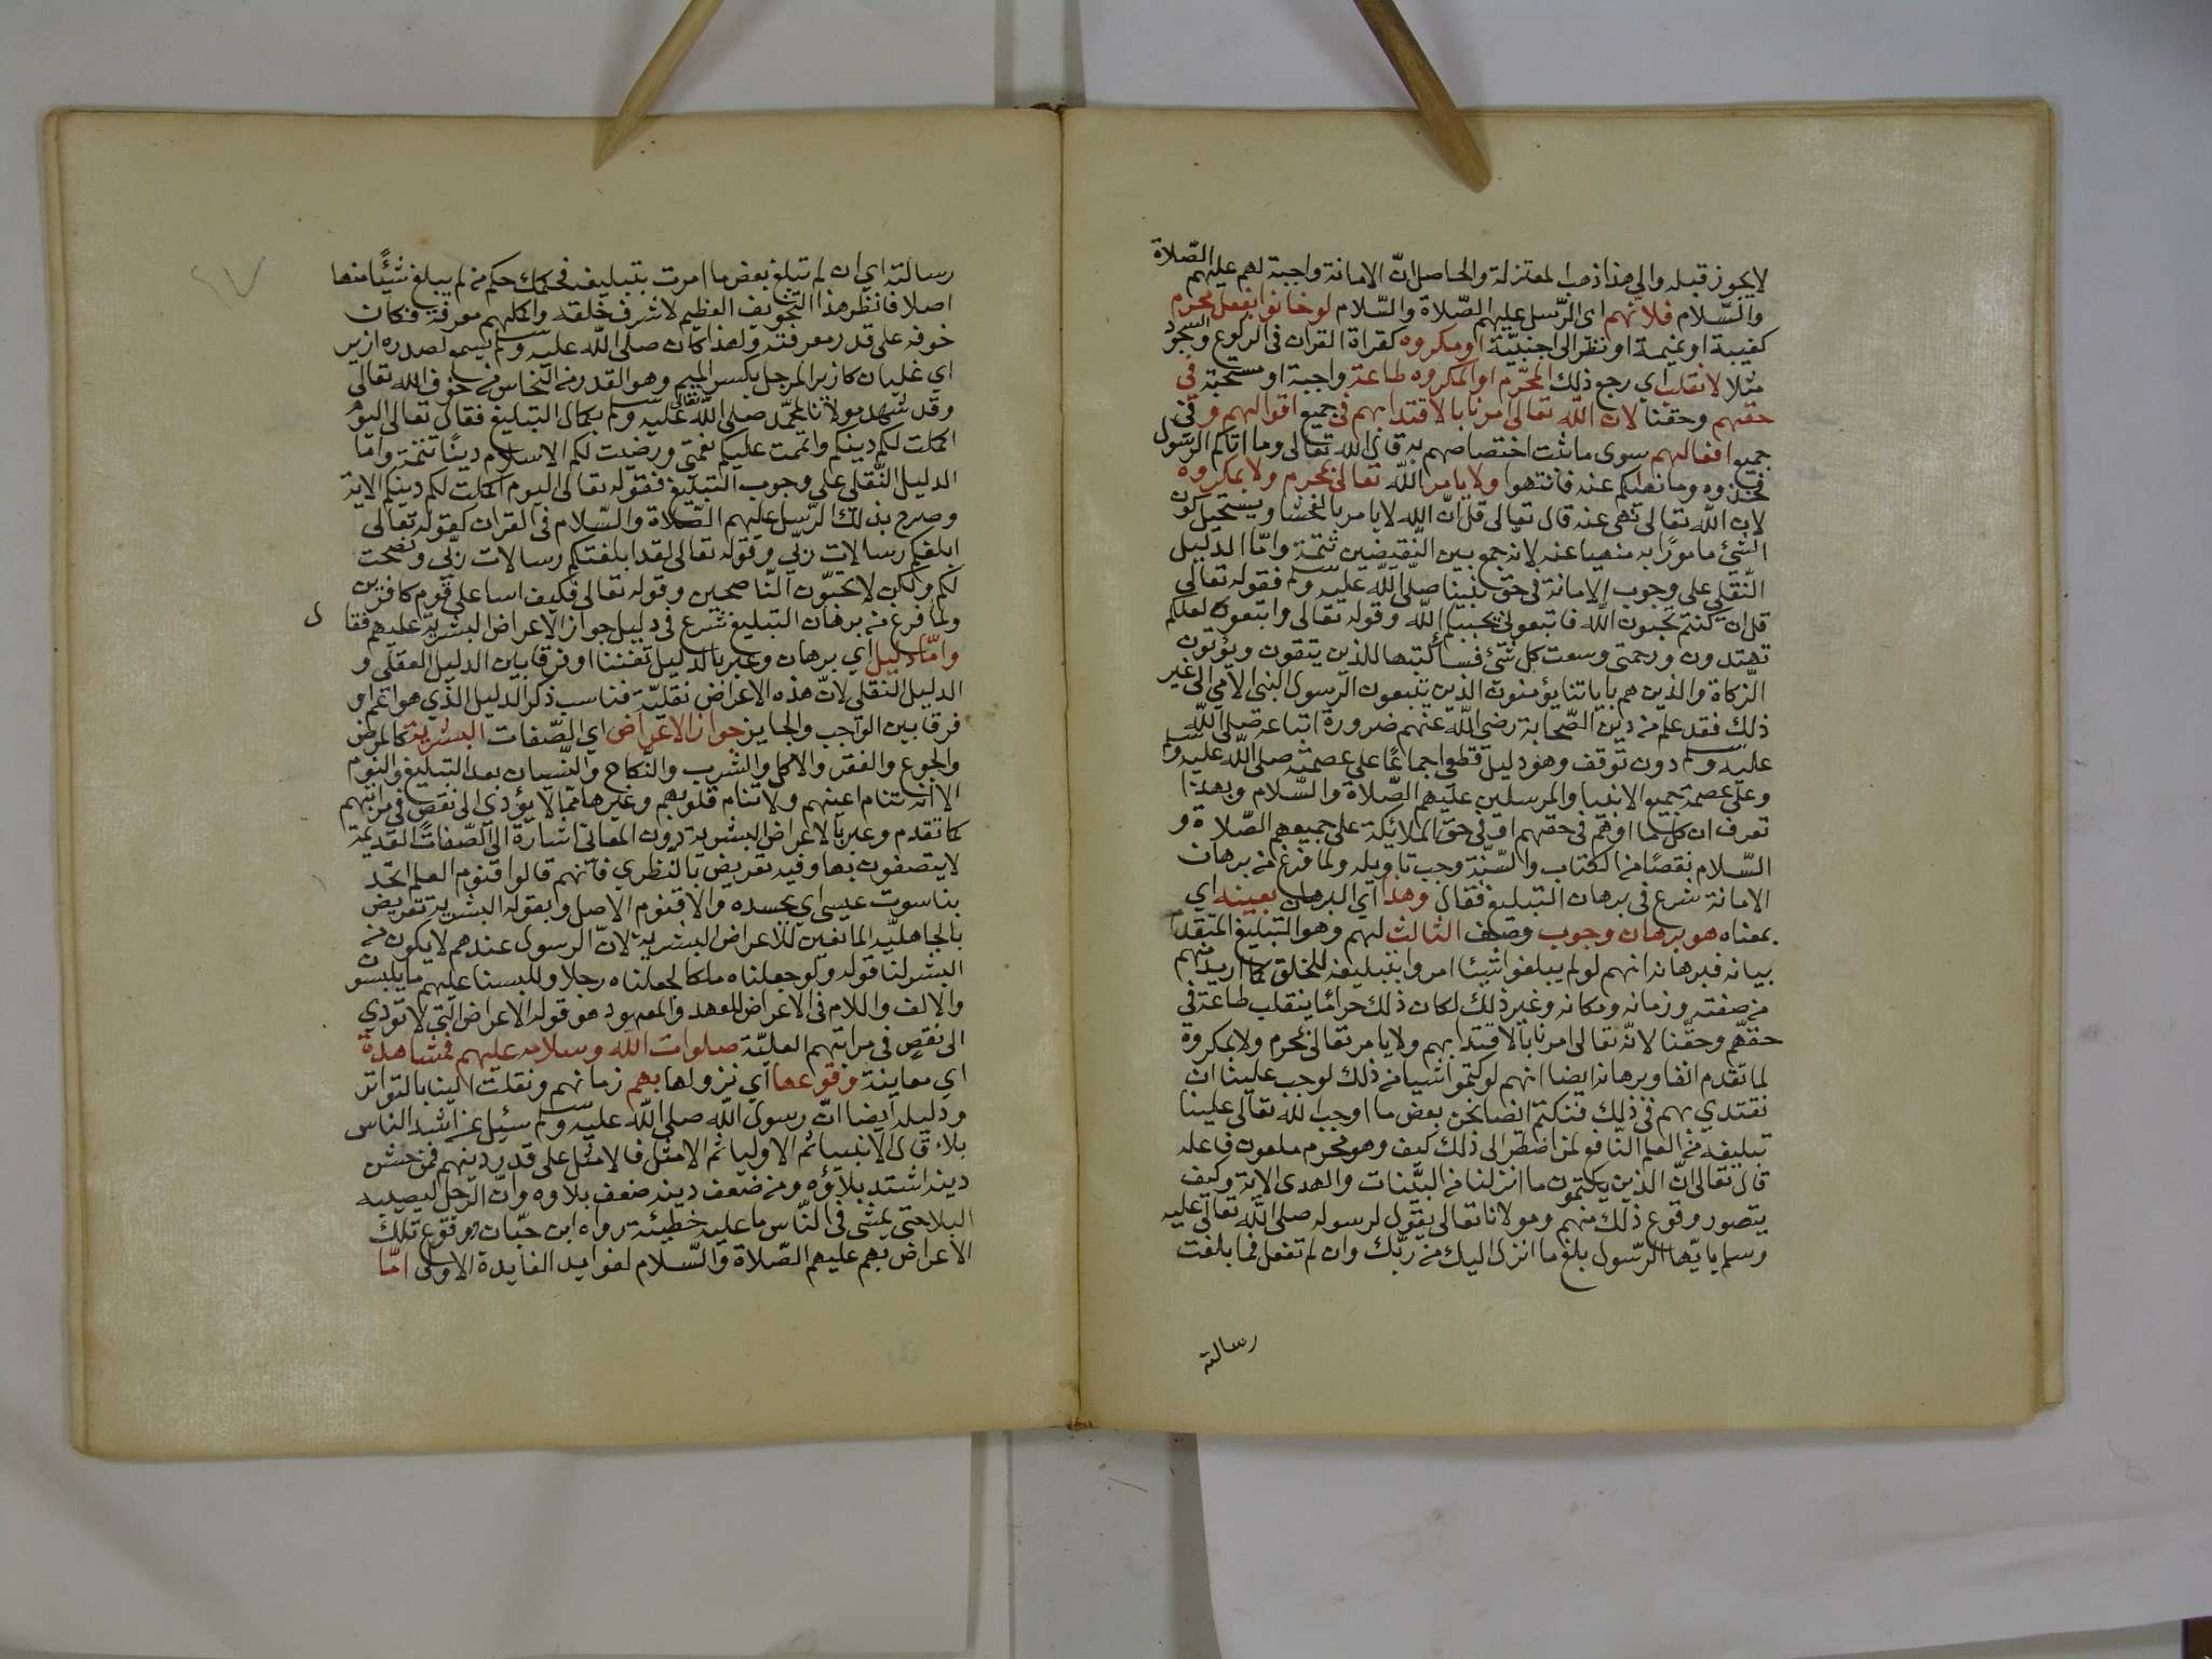 لا يجوز قبله والى هذا ذهب المعتزلة والحاصل انّ الامانة واجبة لهم عليهم الصّلاة
والسّلام فلانّهم اى الرّسل عليهم الصّلاة والسّلام لو خانوا بفعل محرم
كغيبة او نميمة او نظر الى اجنبيّة او مكروه كقراة القران فى الركوع والسجود
مثلا لانقلب اي رجع ذلك المحرّم او المكروه طاعة واجبة او مستحبّة فى
حقهم وحقنا لان الله تعالى امرنا بالاقتدا بهم فى جميع اقوالهم وفى
جميع افعالهم سوى ما ثبت اختصاصهم به قال الله تعالى وما اتاكم الرسول
فخذوه وما نهيكم عنه فانتهوا ولا يامر الله تعالى بمحرم ولا بمكروه
لان الله تعالى نهى عنه قال تعالى قل انّ الله لا يامر بالفحشا ويستحيل كون
الشئ مامورًا به منهيا عنه لانه جمع بين النّقيضين تتمة وامّا الدّليل
النّقلي على وجوب الامانة فى حق نبينا صلّى الله عليه وسلم فقوله تعالى
قل ان كنتم تحبون الله فاتبعونى يحببكم الله وقوله تعالى واتبعوه لعلكم
تهتدون ورحمتى وسعت كل شئ فساكتبها للذين يتقون ويؤتون
الزكاة والذين هم باياتنا يؤمنون الذين يتبعون الرسول النبى الامي الى غير
ذلك فقد علم من دين الصّحابة رضى الله عنهم ضرورة اتباعه صلى الله
عليه وسلم دون توقف وهو دليل قطعى اجماعًا على عصمته صلى الله عليه وسلم
وعلى عصمة جميع الانبيا والمرسلين عليهم الصّلاة والسّلام وبهذا
تعرف ان كل ما اوهم فى حقهم او فى حق الملائكة على جميعهم الصّلاة و
السّلام نقصًا من الكتاب والسّنّة وجب تاويله ولما فرغ من برهان
الامانة شرع فى برهان التبليغ فقال وهذا اي البرهان بعينه اي
بمعناه هو برهان وجوب وصف الثالث لهم وهو التبليغ المتقدم
بيانه فبرهانه انهم لو لم يبلغوا شيئا امروا بتبليغه للخلق كما اريد منهم
من صفته وزمانه ومكانه وغير ذلك لكان ذلك حرامًا ينقلب طاعة فى
حقهم وحقّنا لانّه تعالى امرنا بالاقتدا بهم ولا يامر تعالى بمحرم ولا بمكروه
لما تقدم انفا وبرهانه ايضا انهم لو كتموا شيا من ذلك لوجب علينا ان
نقتدي بهم فى ذلك فنكتم ايضا نحن بعض ما اوجب الله تعالى علينا
تبليغه من العلم النافع لمن اضطر الى ذلك كيف وهو محرم ملعون فاعله
قال تعالى انّ الذين يكتمون ما انزلنا من البيّنات والهدى الاية وكيف
يتصور وقوع ذلك منهم ومولانا تعالى يقول لرسوله صلى الله تعالى عليه
وسلم يا يّها الرّسول بلغ ما انزل اليك من ربّك وان لم تفعل فما بلغت
رسالته
رسالته اي ان لم تبلغ بعض ما امرت بتبليغه فحكمك حكم من لم يبلغ شيئًا منها
اصلا فانظر هذا التخويف العظيم لاشرف خلقه واكملهم معرفة فكان
خوفه على قدر معرفته ولهذا كان صلى الله عليه وسلم يسمع لصدره ازيز
اي غليان كازيز المرجل بكسر الميم وهو القدر من النحاس من خوف الله تعالى
وقد شهد مولانا لمحمّد صلى الله تعالى عليه وسلم بكمال التبليغ فقال تعالى اليوم
اكملت لكم دينكم واتممت عليكم نعمتى ورضيت لكم الاسلام دينًا تتمة وامّا
الدليل النّقلى على وجوب التبليغ فقوله تعالى اليوم اكملت لكم دينكم الاية
وصرح بذلك الرّسل عليهم الصّلاة والسّلام فى القران كقوله تعالى
ابلغكم رسالات ربّي وقوله تعالى لقد ابلغتكم رسالات ربّي ونصحت
لكم ولكن لا تحبّون النّاصحين وقوله تعالى فكيف اسا على قوم كافرين
ولما فرغ من برهان التبليغ شرع فى دليل جواز الاعراض البشريّة عليهم فقا ل
وامّا دليل اي برهان وعبر بالدليل تفننا او فرقا بين الدليل العقلى و
الدليل النقلى لانّ هذه الاعراض نقليّة فناسب ذكر الدليل الذي هو اعم او
فرقا بين الواجب والجايز جواز الاعراض اي الصّفات البشرية كالمرض
والجوع والفقر والاكل والشرب والنّكاح والنّسيان بعد التبليغ والنوم
الا انه تنام اعينهم ولا تنام قلوبهم وغيرها ممّا لا يؤدي الى نقص فى مراتبهم
كما تقدم وعبر بالاعراض البشرية دون المعانى اشارة الى الصّفات القديمة
لا يتصفون بها وفيه تعريض بالنظري فانهم قالوا اقنوم العلم اتحد
بناسوت عيسى اي بجسده والاقنوم الاصل وبقوله البشرية تعريض
بالجاهليّه المانعين للاعراض البشرية لانّ الرسول عندهم لا يكون من
البشر لنا قوله ولو جعلناه ملكا لجعلناه رجلا وللبسنا عليهم ما يلبسون
والالف واللام فى الاعراض للعهد والمعهود هو قوله الاعراض التى لا تودي
الى نقص فى مراتبهم العليّة صلوات الله وسلامه عليهم فمشاهدة
اي معاينة وقوعها اي نزولها بهم زمانهم ونقلت الينا بالتواتر
ودليله ايضا انّ رسول الله صلى الله عليه وسلم سئيل عن اشد الناس
بلاء قال الانبيا ثم الاوليا ثم الامثل فالامثل على قدر دينهم فمن حسن
دينه اشتد بلاؤه ومن ضعف دينه ضعف بلاوه وانّ الرجل ليصيبه
البلا حتى يمشى فى النّاس ما عليه خطيئة رواه ابن حبّان ووقوع تلك
الاعراض بهم عليهم الصّلاة والسّلام لفوايد الفايدة الاولى امّا